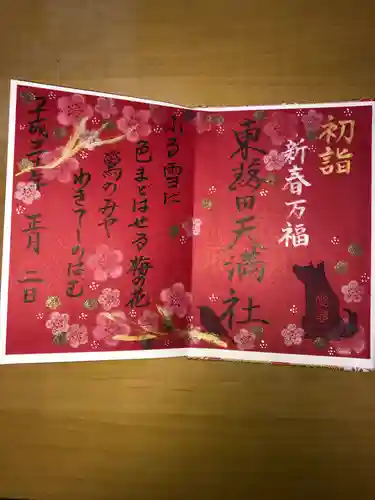 初詣
新春万福
東蕗田天満社
ふる雪に
色まとはせる梅の花
鶯のみや
わきてしのはむ
平成三十年 正月 二日